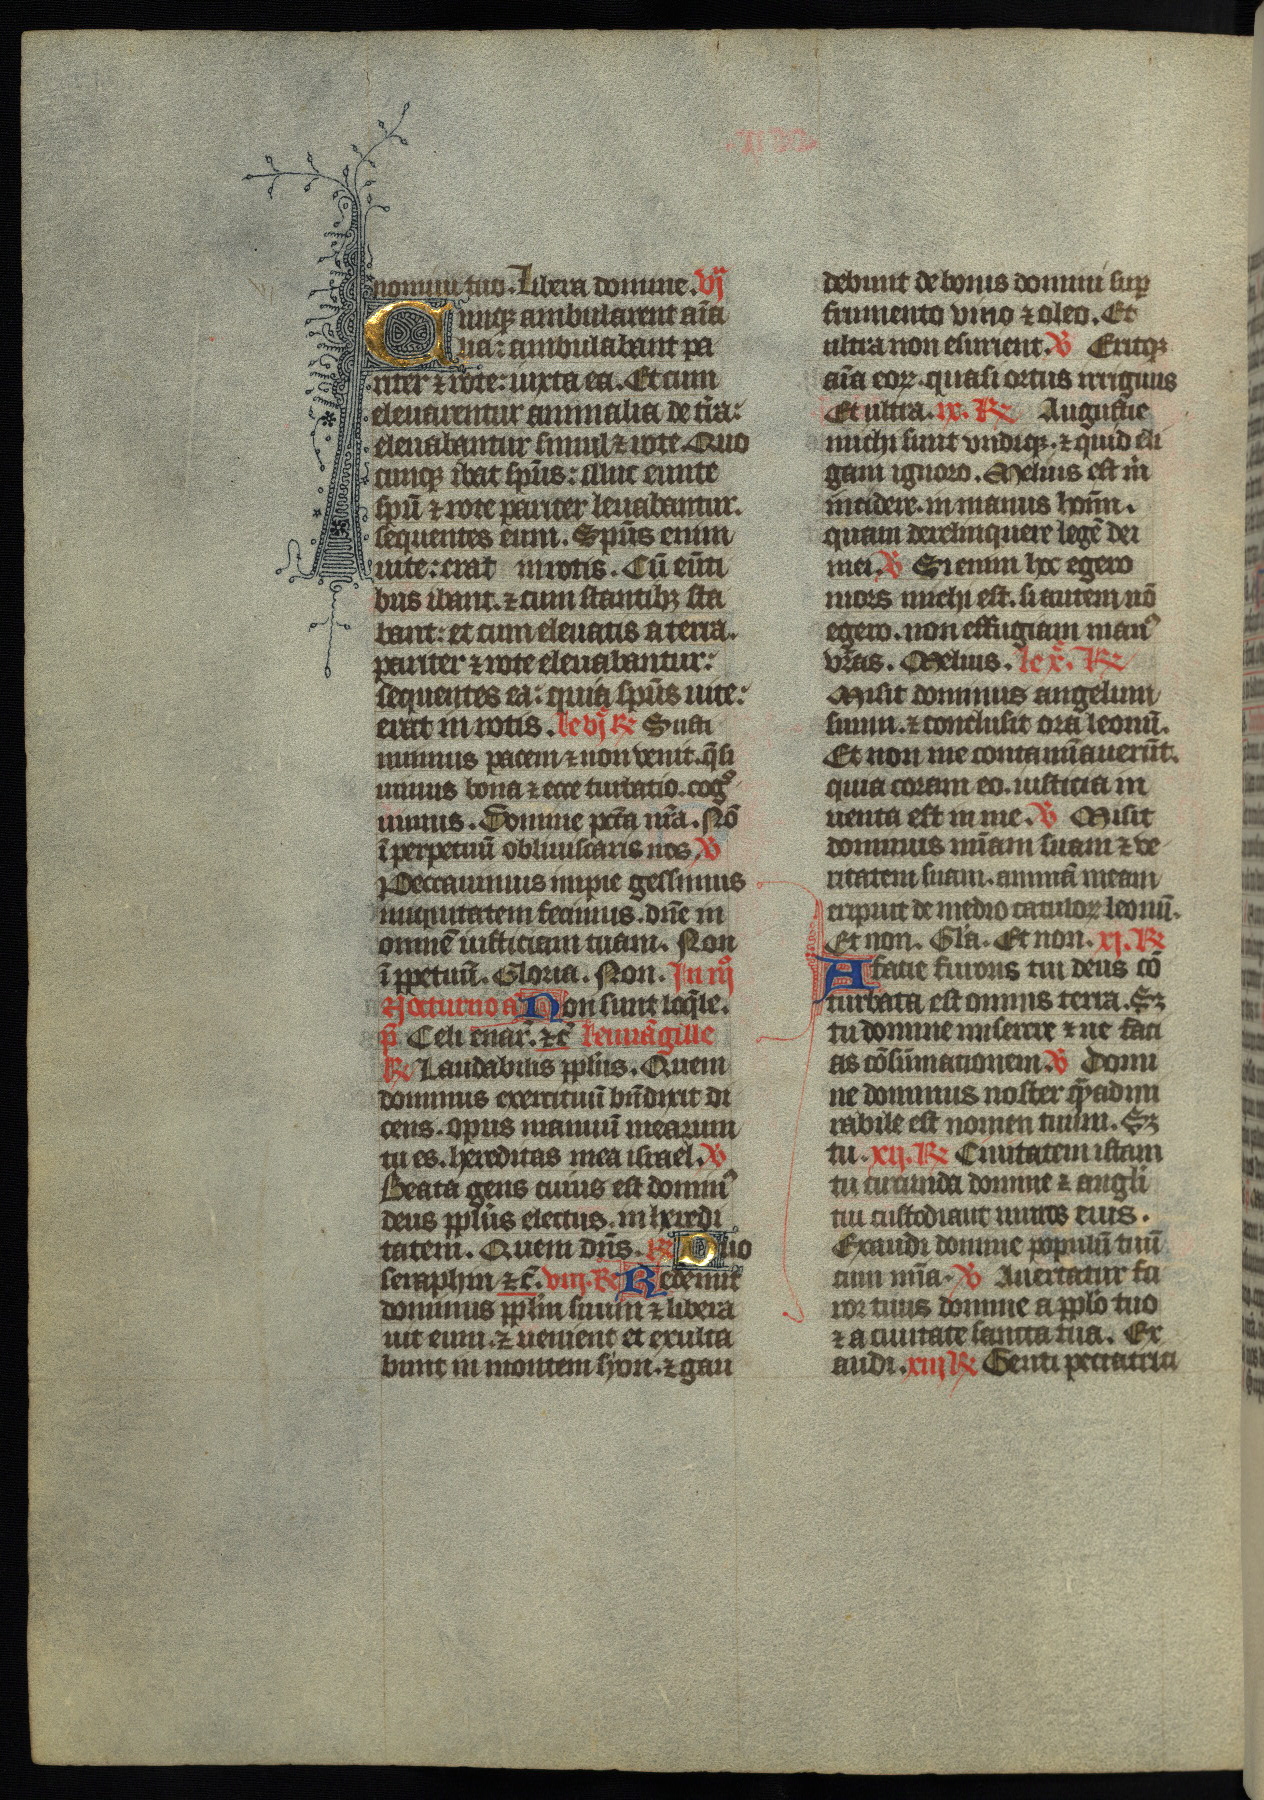 nomini tuo. Libera domine. vij
Cunq; ambularent aīa
lia: ambulabant pa
riter ⁊ rote: iuxta ea. Et cum
eleuarentur animalia de tr̄a:
eleuabantur simul ⁊ rote. Quo
cunq; ibat sp̄us: illuc eunte
sp̄u ⁊ rote pariter leuabantur.
sequentes eum. Sp̄us enim
uite: erat in rotis. Cū eūti
bus ibant. ⁊ cum stantibꝫ sta
bant: et cum eleuatis a terra.
pariter ⁊ rote eleuabantur:
sequentes ea: quia sp̄us uite:
erat in rotis. le vj R Susti
nuimus pacem ⁊ non venit. q̄si
uimus bona ⁊ ecce turbatio. cog°
uimus. Domine pctā nr̄a. Nō
ī perpetuū obliuiscaris nos V
Peccauimus impie gessimus
iniquitatem fecimus. dn̄e in
omnē iusticiam tuam. Non
ī ppetuū. Gloria. Non. In iij°
Nocturno a Non sunt loq̄le.
p̄ Celi enar̄. ⁊c̄
R Laudabilis pplūs. Quem
dominus exercituū bn̄dixit di
cens. opus manuū mearum
tu es. hereditas mea israel. V
Beata gens cuius est domin9
deus pplūs electus. in heredi
tatem. Quem dn̄s. R Duo
seraphin ⁊c̄. viij. R Redemit
dominus pplm̄ suum ⁊ libera
uit eum. ⁊ uenient et exulta
bunt in montem syon. ⁊ gau
debunt de bonis domini sup
frumento vino ⁊ oleo. Et
ultra non esurient. V Eritq;
aīa eoꝝ quasi ortus irriguus
Et ultra. ix. R Augustie
michi sunt vndiq; ⁊ quid eli
gam ignoro. Melius est m̄
incidere in manus hoīm.
quam derelinquere legē dei
mei. V Si enim hoc egero
mors michi est. si autem nō
egero. non effugiam man9
vr̄as. Melius. le x. R
Misit dominus angelum
suum. ⁊ conclusit ora leonū.
Et non me contamīauerūt.
quia coram eo. iusticia in
uenta est in me. V Misit
dominus mīam suam ⁊ ve
ritatem suam. animā meam
eripuit de medio catuloꝝ leonū.
Et non. Glā. Et non. xj. R
A facie furoris tui deus cō
turbata est omnis terra. Sꝫ
tu domine miserere ⁊ ne faci
as cōsūmationem. V Domi
ne dominus noster q̄ admi
rabile est nomen tuum. Sꝫ
tu. xij. R Ciuitatem istam
tu circunda domine ⁊ angli
tui custodiant muros eius.
Exaudi domine populū tuū
cum mīa. V Auertatur fu
ror tuus domine a pplo tuo
⁊ a ciuitate sancta tua. Ex
audi. xiij R Genti peccatrici